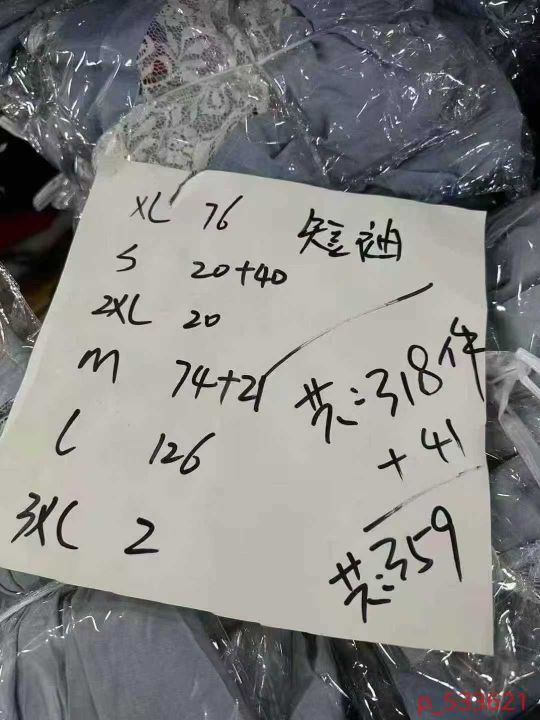 XL 76
短袖
S 20+40
2XL 20
M 74+21
共:318件
L 126
+41
3XL 2
共:359
p_533621